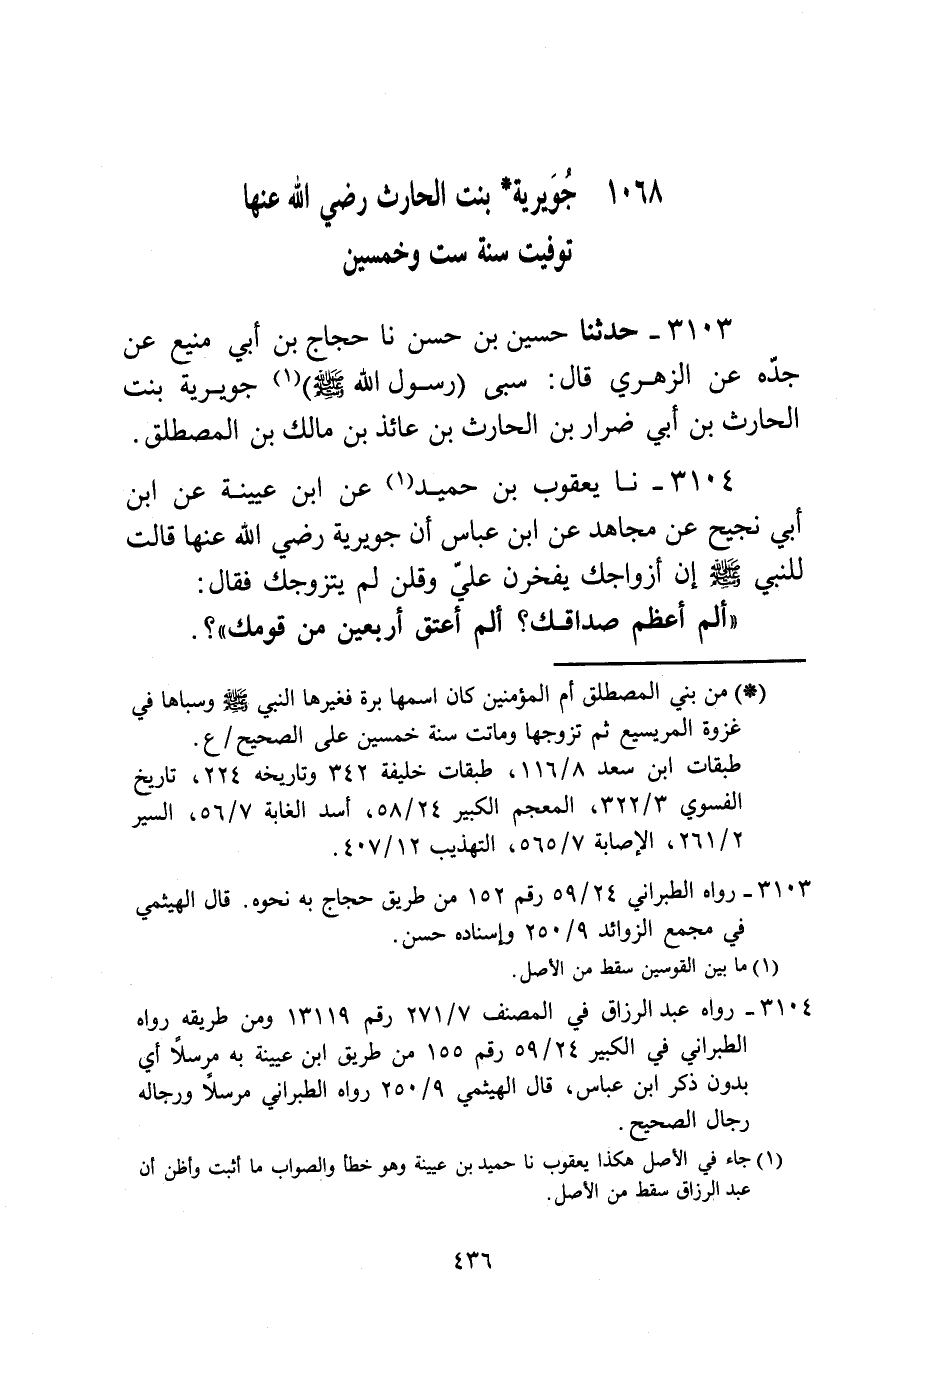 ١٠٦٨ جُوَيرية* بنت الحارث رضي الله عنها
توفيت سنة ست وخمسين
٣١٠٣ ـ حدثنا حسين بن حسن نا حجاج بن أبي منيع عن
جدّه عن الزهري قال: سبى (رسول الله ﷺ)(١) جويرية بنت
الحارث بن أبي ضرار بن الحارث بن عائذ بن مالك بن المصطلق.
٣١٠٤ ـ نا يعقوب بن حميد(١) عن ابن عيينة عن ابن
أبي نجيح عن مجاهد عن ابن عباس أن جويرية رضي الله عنها قالت
للنبي ﷺ إن أزواجك يفخرن عليّ وقلن لم يتزوجك فقال:
«ألم أعظم صداقك؟ ألم أعتق أربعين من قومك»؟.
(*) من بني المصطلق أم المؤمنين كان اسمها برة فغيرها النبي ﷺ وسباها في
غزوة المريسيع ثم تزوجها وماتت سنة خمسين على الصحيح/ع.
طبقات ابن سعد ١١٦/٨، طبقات خليفة ٣٤٢ وتاريخه ٢٢٤، تاريخ
الفسوي ٣٢٢/٣، المعجم الكبير ٥٨/٢٤، أسد الغابة ٥٦/٧، السير
٢٦١/٢، الإصابة ٥٦٥/٧، التهذيب ٤٠٧/١٢.
٣١٠٣ ـ رواه الطبراني ٥٩/٢٤ رقم ١٥٢ من طريق حجاج به نحوه. قال الهيثمي
في مجمع الزوائد ٢٥٠/٩ وإسناده حسن.
(١) ما بين القوسين سقط من الأصل.
٣١٠٤ ـ رواه عبد الرزاق في المصنف ٢٧١/٧ رقم ١٣١١٩ ومن طريقه رواه
الطبراني في الكبير ٥٩/٢٤ رقم ١٥٥ من طريق ابن عيينة به مرسلاً أي
بدون ذكر ابن عباس، قال الهيثمي ٢٥٠/٩ رواه الطبراني مرسلاً ورجاله
رجال الصحيح.
(١) جاء في الأصل هكذا يعقوب نا حميد بن عيينة وهو خطأ والصواب ما أثبت وأظن أن
عبد الرزاق سقط من الأصل.
٤٣٦